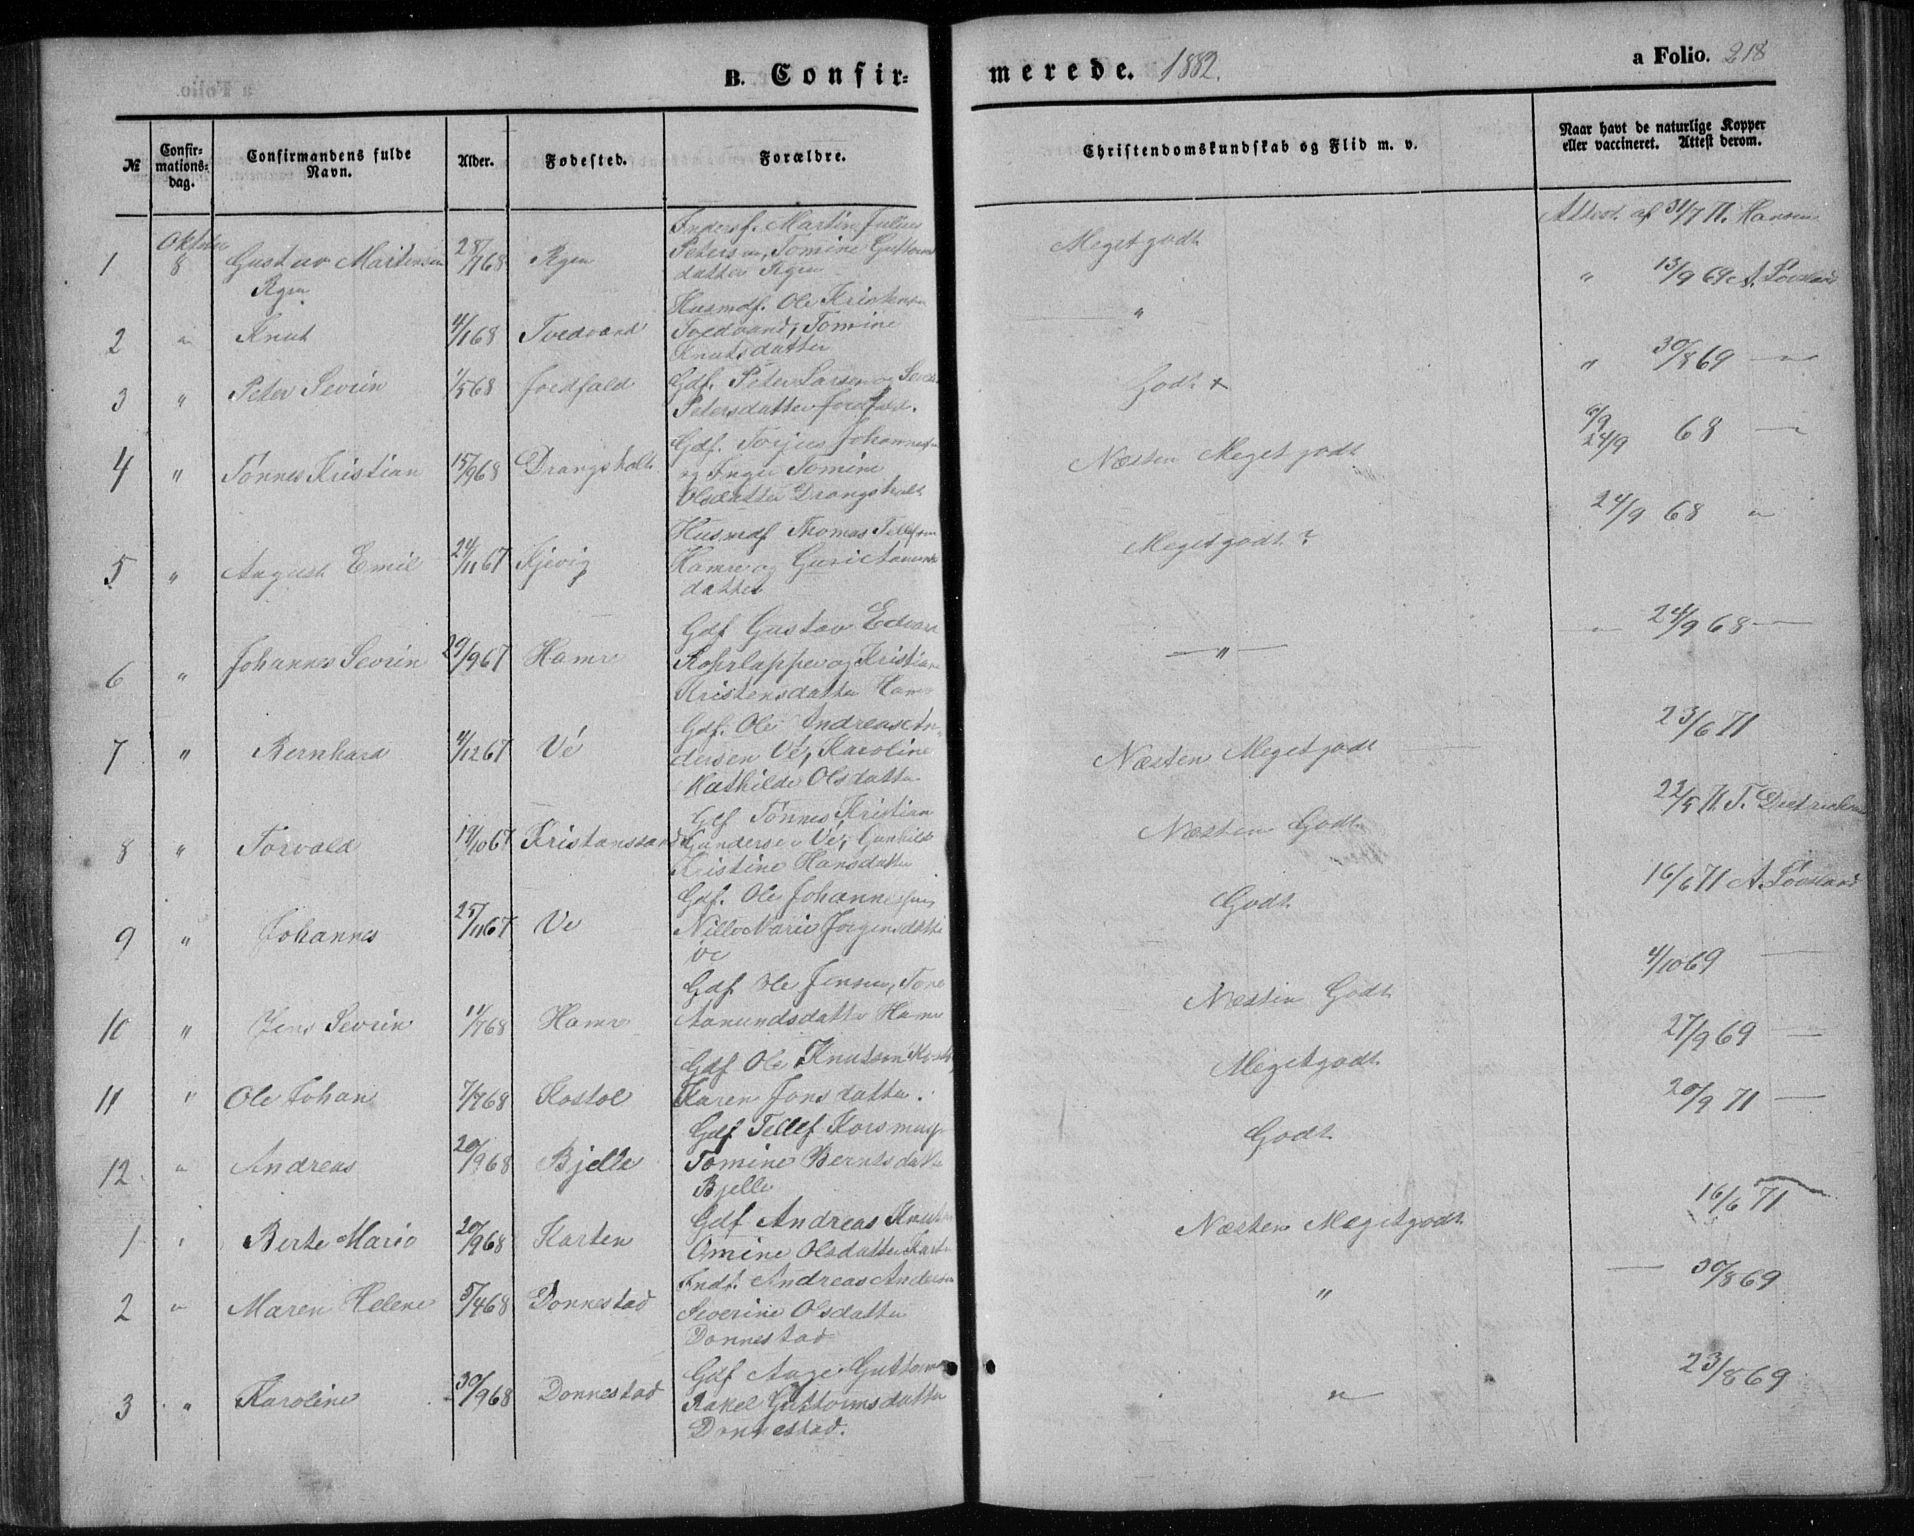 B. Confir-
merede. 1882.
a Folio. 218
№
Confir-
mations-
dag.
Confirmandens fulde
Navn.
Alder.
Fødested.
Forældre.
Christendomskundskab og Flid m. v.
Naar havt de naturlige Kopper
eller vaccineret. Attest derom.
Attest af 31/7 71. Hansen
1 Oktober 8 Gustav Martensen 28/7 68 Rgen
Rgen
Martin Julius
Petersen, Tomine Guttorms
datter Rgen
Meget godt
" 13/9 69 A. Løvland
2 " Knut 4/1 68 Tvedvand
Husmdf. Ole Kristensen
Tvedvand, Tomine
Knutsdatter
"
" 30/8 69 "
3 " Peter Severin 1/5 68 Jordfald
Gdf. Peter Larsen og
Petersdatter Jordfald.
Godt +
24/9 68 "
4 " Tønnes Kristian 15/9 68 Drangsholt
Gdf. Torjus Johannes
og Inger Tomine
Olsdatter Drangsholt
Næsten Meget godt
24/9 68 "
5 " August Emil 24/11 67 Kjevig
Husmdf Thomas Tellefsen
Hamre og Guri
datter
Meget godt ?
" 24/9 68
6 " Johannes Severin 29/9 67 Hamre
Gdf Gustav Edvard
og Kristiane
Kristensdatter Hamre
"
23/6 71
7 " Bernhard 4/12 67 Vé
Gdf. Ole Andreas An-
dersen Vé, Karoline
Mathilde Olsdatter
Næsten Meget godt
22/5 71 T.
8 " Torvald 19/10 67 Kristianssand
Gdf Tønnes Kristian
Gundersen Vé, Gunhild
Kristine Hansdatter
Næsten Godt
16/6 71 A Løvland
9 " Johannes 25/11 67 Ve
Gdf. Ole Johannesen,
Marie Jørgensdatter
Ve
Godt
4/10 69
10 " Jens Severin 11/7 68 Hamre
Gdf Ole Jensen, Tone
Aanundsdatter Hamre
Næsten Godt
27/9 69
11 " Ole Johan 7/7 68 Kostøl
Gdf Ole Knutsen Kostøl
Karen Jonsdatter.
Meget godt
20/9 71
12 " Andreas 20/9 68 Bjelle
Gdf Tellef
Tomine Berntsdatter
Bjelle
Godt
16/6 71
1 " Berte Marie 20/9 68 Karten
Gdf Andreas Knutsen
Omine Olsdatter Karten
Næsten Meget godt
30/8 69
2 " Maren Helene 5/4 68 Donnestad
Indt. Andreas Andersen
Severine Olsdatter
Donnestad
"
23/8 69
3 " Karoline 30/9 68 Donnestad
Gdf Aage Guttormsen
Rakel Guttormsdatter
Donnestad.
"